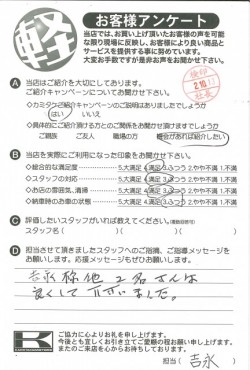 軽
お客様アンケート
当店では、お買い上げ頂いたお客様の声を可能
な限り現場に反映し、お客様により良い商品と
サービスを提供する事に努めています。
大変お手数ですが是非お声をお聞かせ下さい。
A 当店はご紹介を大切にしております。
ご紹介キャンペーンについてお聞かせ下さい。
◇カミタケご紹介キャンペーンのご説明はありましたでしょうか
はい いいえ
◇具体的にご紹介頂ける方とのご関係をお聞かせ頂けますでしょうか
ご親族 ご友人 職場の方 機会があれば紹介したい
B 当店を実際にご利用になった印象をお聞かせ下さい。
◇総合的な満足度 5.大満足 4.満足 3.ふつう 2.やや不満 1.不満
◇スタッフの対応 5.大満足 4.満足 3.ふつう 2.やや不満 1.不満
◇お店の雰囲気、清掃 5.大満足 4.満足 3.ふつう 2.やや不満 1.不満
◇納車時のお車の状態 5.大満足 4.満足 3.ふつう 2.やや不満 1.不満
C 評価したいスタッフがいれば教えてください。(複数回答可)
スタッフ名( )( )
D 担当させて頂きましたスタッフへのご感想、ご指導メッセージを
お願いします。応援メッセージもぜひお願いします。
吉永様他2名さんは
良くして下さいました。
K
ご協力に心よりお礼を申し上げます。
今後とも宜しくお引き立てご愛顧の程お願い申し上げます。
またのご来店を心からお待ちしております。
担当( 吉永 )